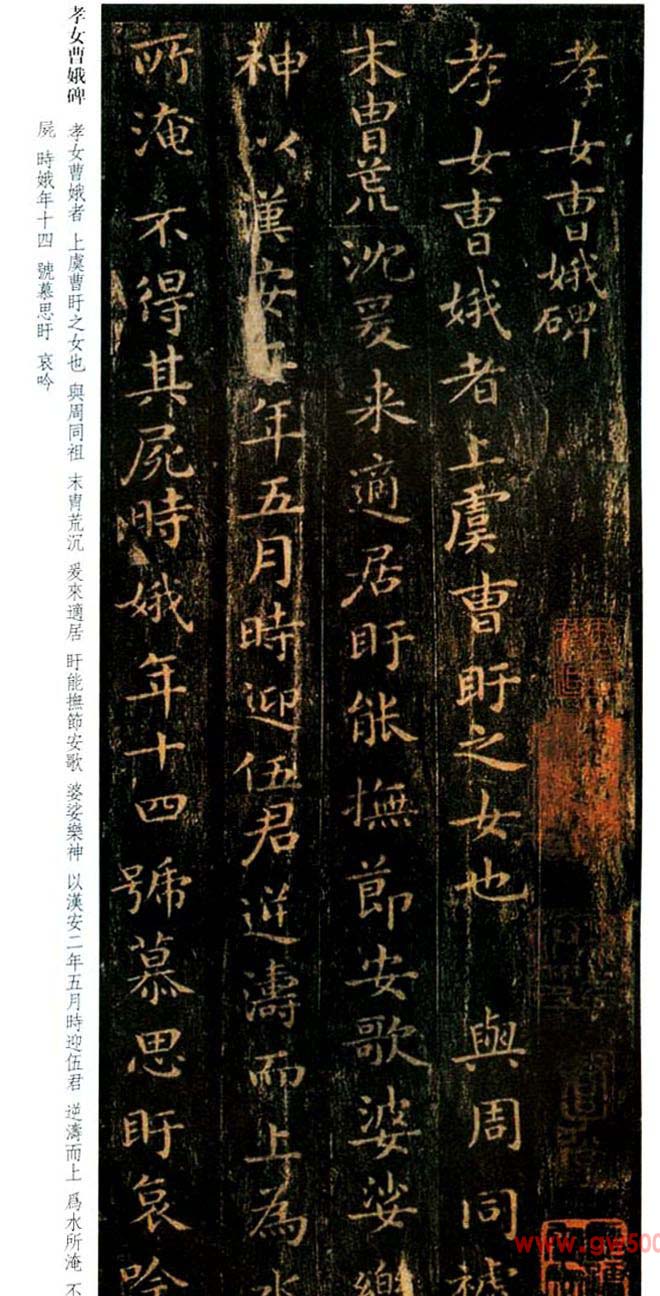 孝女曹娥碑
孝女曹娥者上虞曹盱之女也 與周同
末胄荒沈爰来適居盱能撫節安歌婆娑樂
神以漢安二年五月時迎伍君逆濤而上為水
所淹不得其屍時娥年十四號慕思盱哀吟
孝女曹娥碑
孝女曹娥者 上虞曹盱之女也 與周同祖 末胄荒沉 爰來適居 盱能撫節安歌 婆娑樂神 以漢安二年五月時迎伍君 逆濤而上 爲水所淹 不
屍 時娥年十四 號慕思盱 哀吟